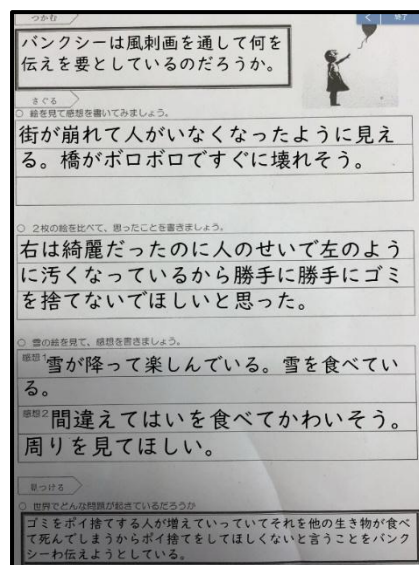 つかむ
く 終了
バンクシーは風刺画を通して何を
伝えを要としているのだろうか。
さぐる
○ 絵を見て感想を書いてみましょう。
街が崩れて人がいなくなったように見え
る。橋がボロボロですぐに壊れそう。
○ 2枚の絵を比べて、思ったことを書きましょう。
右は綺麗だったのに人のせいで左のよう
に汚くなっているから勝手に勝手にゴミ
を捨てないでほしいと思った。
○ 雪の絵を見て、感想を書きましょう。
感想1 雪が降って楽しんでいる。雪を食べてい
る。
感想2 間違えてはいを食べてかわいそう。
周りを見てほしい。
見つける
○ 世界でどんな問題が起きているだろうか
ゴミをポイ捨てする人が増えていっていてそれを他の生き物が食べ
て死んでしまうからポイ捨てをしてほしくないと言うことをバンク
シーわ伝えようとしている。